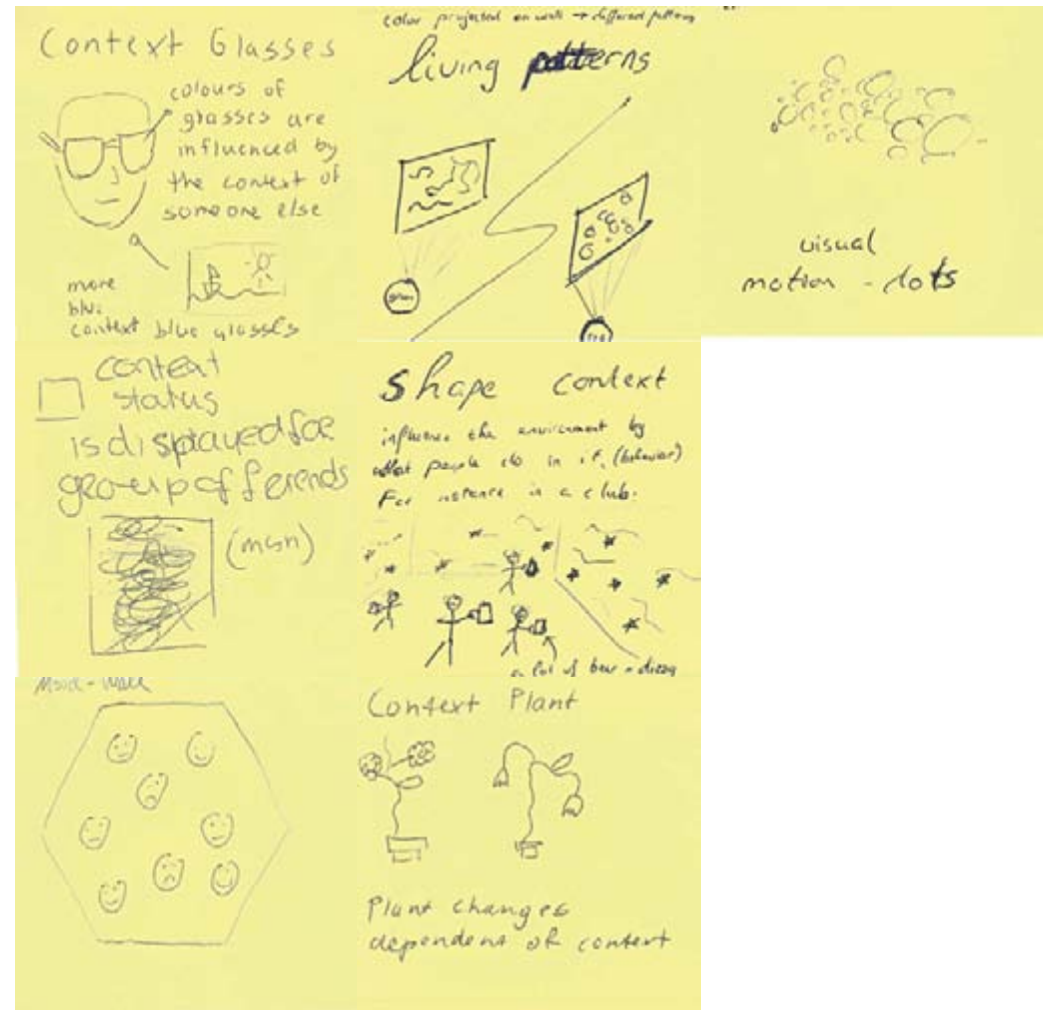 Context Glasses
colours of
glasses are
influenced by
the context of
someone else
more
blu.
context blue glasses
color projected on wall → different pattern
living patterns
visual
motion - dots
context
status
is displayed for
group of friends
(msn)
shape context
influence the enviroment by
what people do in it, (behavior)
For instance in a club.
a lot of beer = dizzy
Context Plant
Plant changes
dependent of context